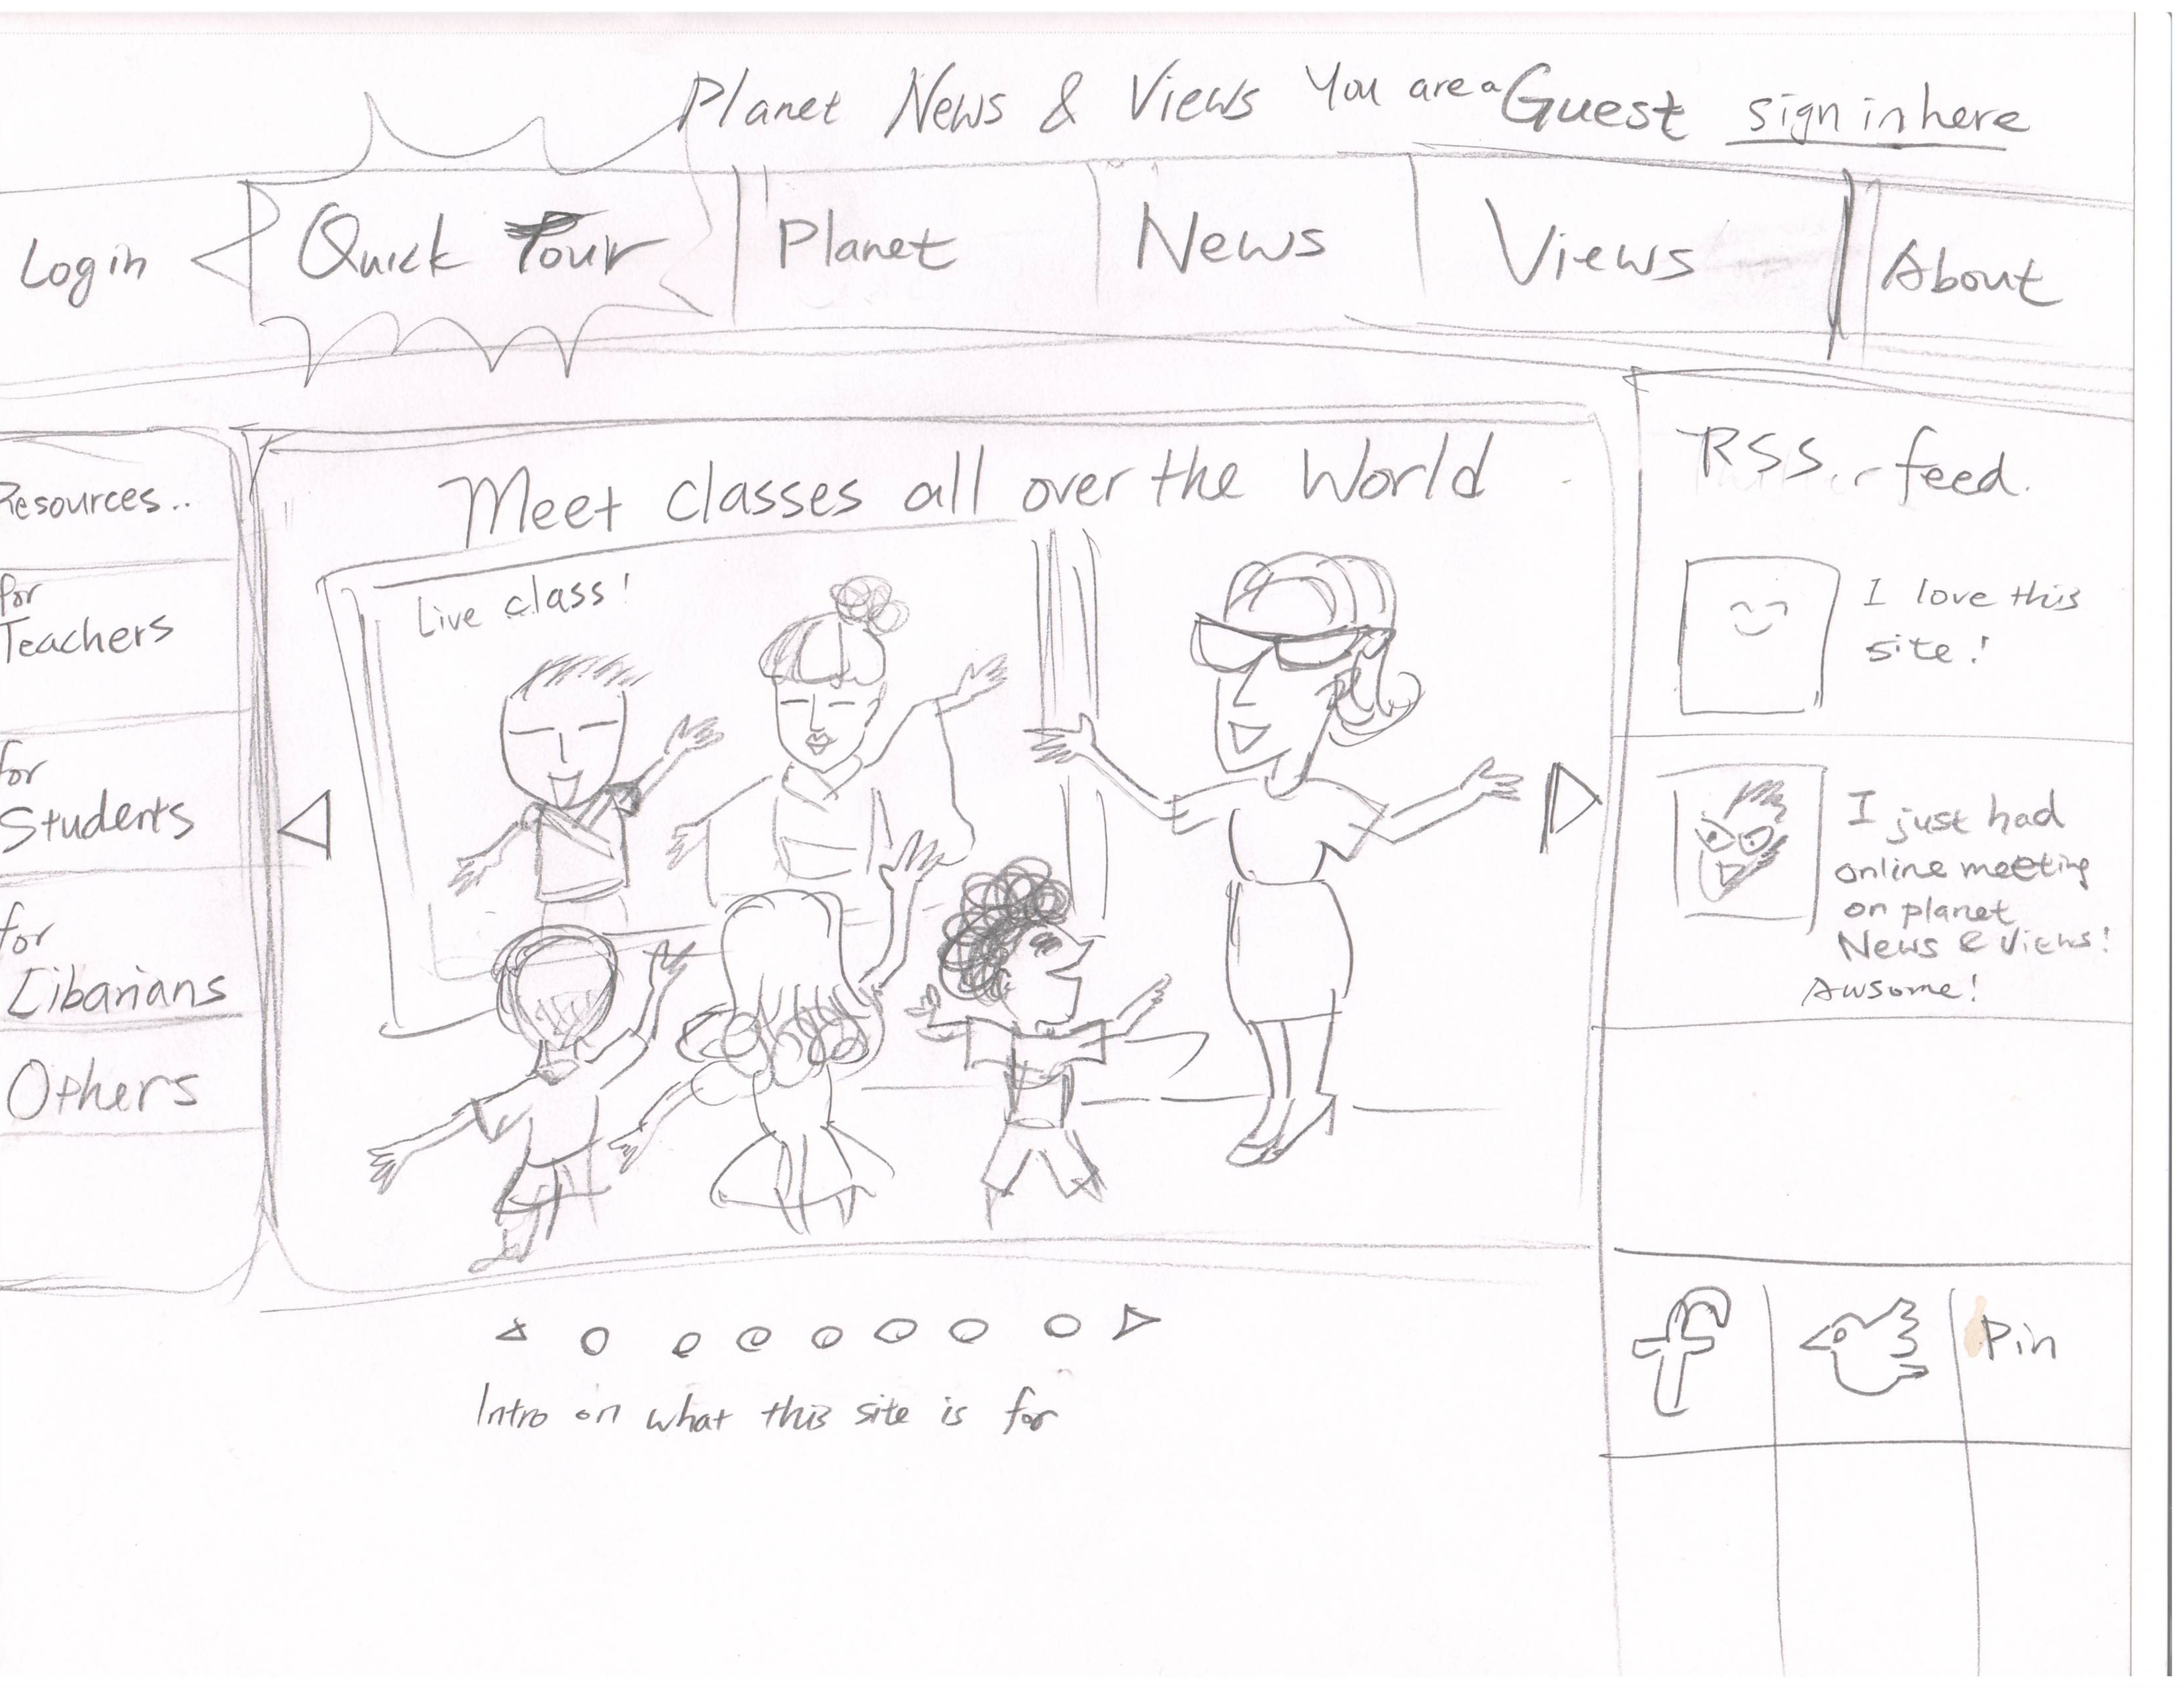 Planet News & Views You are a Guest sign in here
Login
Quick Tour
Planet
News
Views
About
Resources..
for
Teachers
for
Students
for
Libarians
Others
Meet classes all over the World
Live class!
RSS feed.
I love this
site!
I just had
online meeting
on planet
News & Views!
Awsome!
f
Pin
Intro on what this site is for